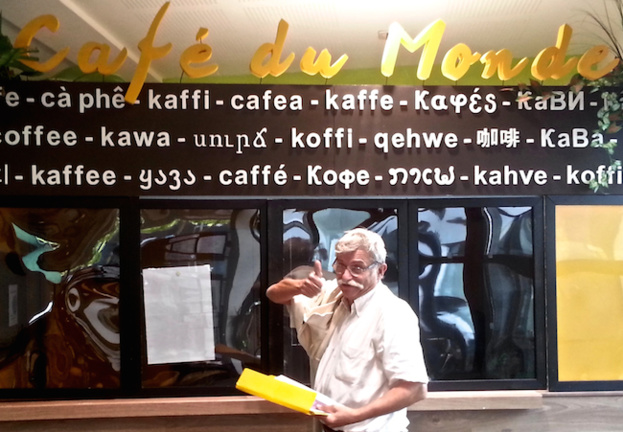 Café du Monde
fe - cà phê - kaffi - cafea - kaffe - Καφές - КаВИ -
coffee - kawa - սուրճ - koffi - qehwe - 咖啡 - КаВа -
- kaffee - ყავა - caffé - Кофе - ກາເຟ - kahve - koffi